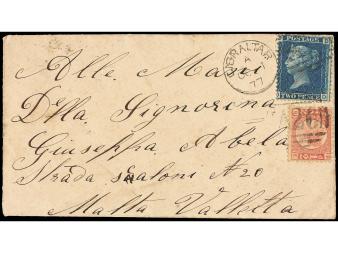 GIBRALTAR
A
77
POSTAGE
TWO PENCE
Alle Mani
Della Signorina
Giuseppa Abela
Strada Saloni N 20
Malta Valletta